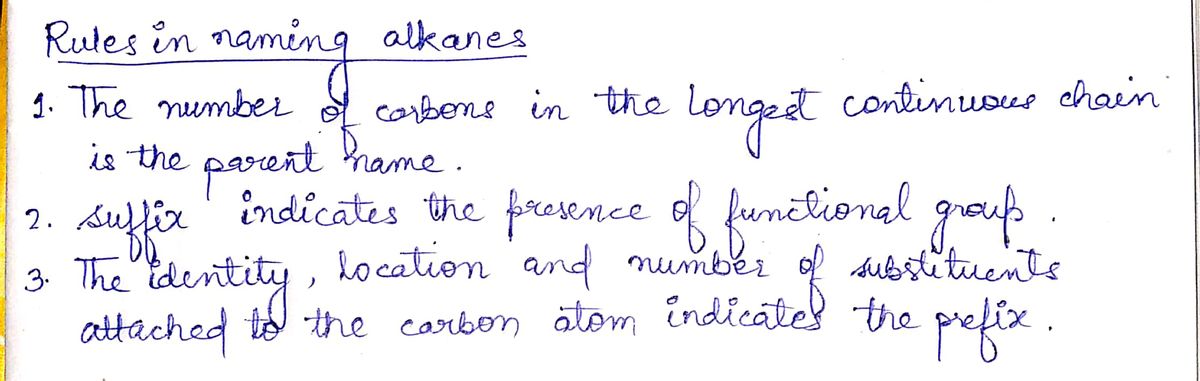 Rules in naming alkanes
1. The number of carbons in the longest continuous chain
is the parent name.
2. suffix indicates the presence of functional group.
3. The identity, location and number of substituents
attached to the carbon atom indicates the prefix.